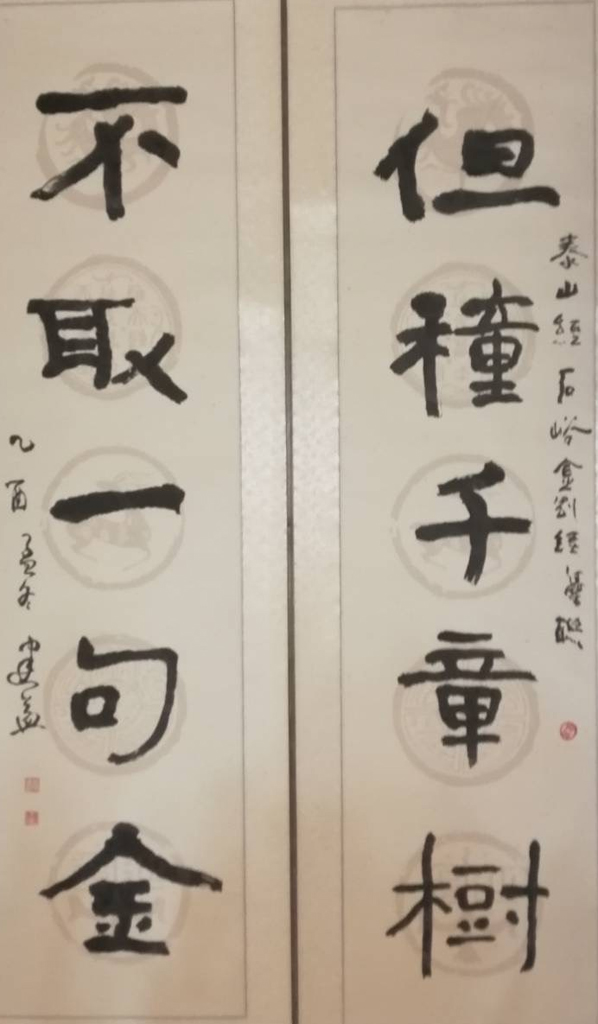 泰山經石峪金剛經集聯
但穜千章樹
不取一句金
乙酉孟冬